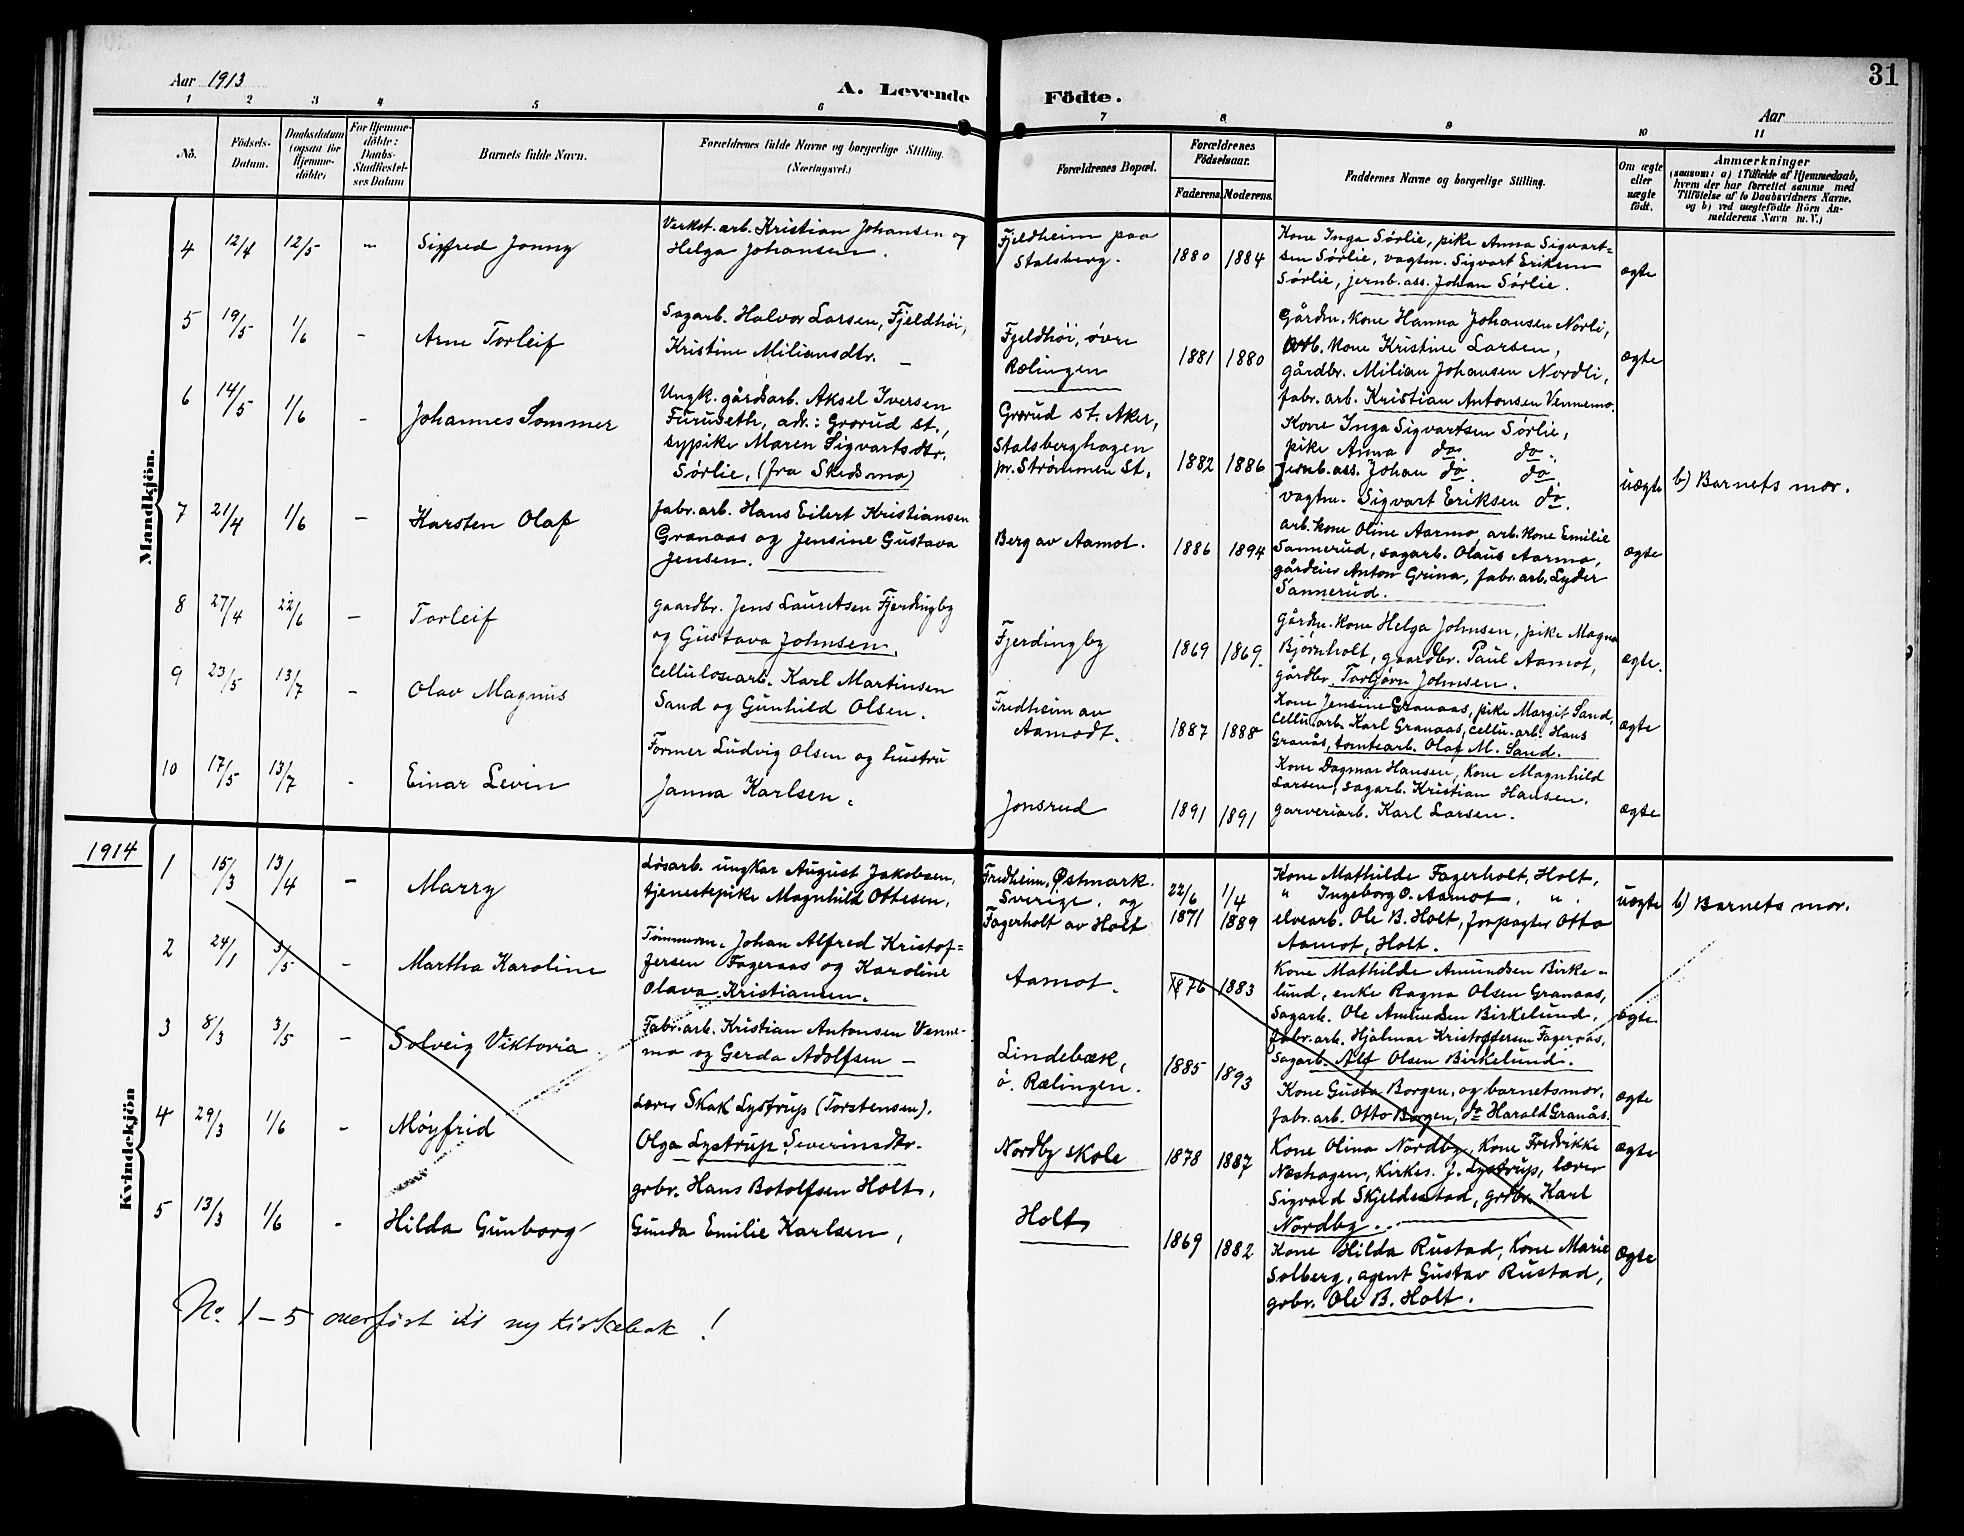 Aar 1913
A. Levende Födte.
Aar
31
1 2 3 4 5 6 7 8 9 10 11
No.
Födsels-
Datum.
Daabsdatum
(ogsaa for
Hjemme-
döbte)
For Hjemme-
döbte:
Daabs-
Stadfæstel-
ses Datum
Barnets fulde Navn.
Forældrenes fulde Navne og borgerlige Stilling.
(Næringsvei.)
Forældrenes Bopæl.
Forældrenes
Födselsaar.
Faderens. Moderens.
Faddernes Navne og borgerlige Stilling.
Om ægte
eller
uægte
födt.
Anmærkninger
(saasom: a) i Tilfælde af Hjemmedaab,
hvem der har forrettet samme, med
Tilföielse af to Daabsvidners Navne.
og b) ved uægtefödte Börn An-
melderens Navn m. V.)
Mandkjön.
4 12/4 12/5 - Sigfred Jonny
Verkst. arb. Kristian Johansen og
Helga Johansen.
Fjeldheim paa
Stalsberg.
1880 1884
Kone Inga Sørlie, pike Anna Sigvart-
sen Sørlie, vagtm. Sigvart Eriksen
Sørlie, jernb. ass. Johan Sørlie.
ægte
5 19/5 1/6 - Arne Torleif
Sagarb. Halvor Larsen, Fjeldhøi,
Kristine Miliansdtr. -
Fjeldhøi, øvre
Rælingen
1881 1880
Gårdm. kone Hanna Johansen Norli,
Arb. kone Kristine Larsen,
gårdbr. Milian Johansen Nordli,
fabr. arb. Kristian Antonsen Vennemo.
ægte
6 14/5 1/6 - Johannes Sommer
Ungk. gårdsarb. Aksel Iversen
Furuseth, adr.: Grorud st.,
sypike Maren Sigvartsdtr.
Sørlie. (fra Skedsmo)
Grorud st. Aker,
Stalsberghagen
pr. Strømmen St.
1882 1886
Kone Inga Sigvartsen Sørlie,
pike Anna do. do.
Jernb. ass. Johan do. do.
vagtm. Sigvart Eriksen do.
uægte b) Barnets mor.
7 21/4 1/6 - Karsten Olaf
fabr. arb. Hans Eilert Kristiansen
Granaas og Jensine Gustava
Jensen.
Berg av Aamot.
1886 1894
arb. kone Oline Aarmo, arb. kone Emilie
Sannerud, sagarb. Olaus Aarmo,
gårdeier Anton Grina, fabr. arb. Lyder
Sannerud.
ægte
8 27/4 22/6 - Torleif
gaardbr. Jens Lauretsen Fjerdingby
og Gustava Johnsen.
Fjerdingby
1869 1869.
Gårdm. kone Helga Johnsen, pike Magna
Bjørnholt, gaardbr. Paul Aamot,
gårdbr. Torbjørn Johnsen.
ægte.
9 23/5 13/7 - Olav Magnus
Cellulosearb. Karl Martinsen
Sand og Gunhild Olsen.
Fredheim av
Aamodt.
1887 1888
Kone Jensine Granaas, pike Margit Sand,
Cellu. arb. Karl Granaas, cellu. arb. Hans
Granås, tomtearb. Olaf M. Sand.
ægte
10 17/5 13/7 - Einar Levin
Former Ludvig Olsen og hustru
Janna Karlsen.
Jonsrud
1891 1891
Kone Dagmar Hansen, Kone Magnhild
Larsen, sagarb. Kristian Hansen,
garveriarb. Karl Larsen.
ægte
1914
Kvindekjön
1 15/3 13/4 - Marry
Løsarb. ungkar August Jakobsen,
tjenestepike Magnhild Ottesen.
Fredheim, Østmark.
Sverige. og
Fagerholt av Holt
22/6 1871 1/4 1889
Kone Mathilde Fagerholt, Holt,
" Ingeborg O. Aamot, ".
elvearb. Ole B. Holt, forpagter Otto
Aamot, Holt.
uægte b) Barnets mor.
2 24/1 3/5 - Martha Karoline
Tømmerm. Johan Alfred Kristof-
fersen Fageraas og Karoline
Olava Kristiansen.
Aamot.
1876 1883
Kone Mathilde Amundsen Birke-
lund, enke Ragna Olsen Granaas,
Sagarb. Ole Amundsen Birkelund,
fabr. arb. Hjalmar Kristoffersen Fageraas,
Sagarb. Alf Olsen Birkelund.
ægte
3 8/3 3/5 - Solveig Viktoria
Fabr. arb. Kristian Antonsen Venne-
mo og Gerda Adolfsen -
Lindebæk,
ö. Rælingen.
1885 1893
Kone Gusta Borgen, og barnets mor,
fabr. arb. Otto Borgen, do Harald Granås.
ægte
4 29/3 1/6 - Møyfrid
Lærer Skak Lystrup (Torstensen).
Olga Lystrup, Severinsdtr.
Nordby skole
1878 1887
Kone Olina Nordby, Kone Fredrikke
Næshagen, Kirkes. J. Lystrup, lærer
Sigvard Skjeldestad, grdbr. Karl
Nordby.
ægte
5 13/3 1/6 - Hilda Gunborg
grbr. Hans Botolfsen Holt,
Gunda Emilie Karlsen,
Holt
1869 1882
Kone Hilda Rustad, Kone Marie
Solberg, agent Gustav Rustad,
grbr. Ole B. Holt.
ægte
No. 1-5 overført til ny kirkebok!